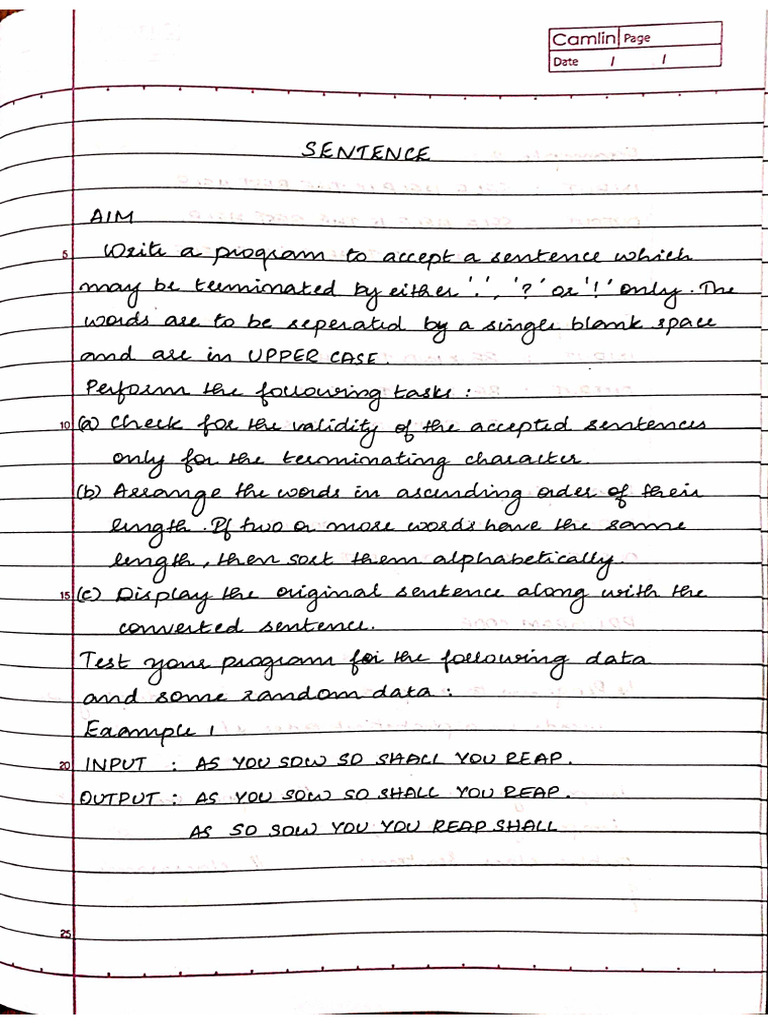 Camlin Page
Date / /
SENTENCE
AIM
5 Write a program to accept a sentence which
may be terminated by either '.', '?' or '!' only. The
words are to be seperated by a single blank space
and are in UPPER CASE.
Perform the following tasks :
10 (a) Check for the validity of the accepted sentences
only for the terminating character.
(b) Arrange the words in ascending order of their
length. If two or more words have the same
length, then sort them alphabetically.
15 (c) Display the original sentence along with the
converted sentence.
Test your program for the following data
and some random data :
Example 1
20 INPUT : AS YOU SOW SO SHALL YOU REAP.
OUTPUT : AS YOU SOW SO SHALL YOU REAP.
AS SO SOW YOU YOU REAP SHALL
25